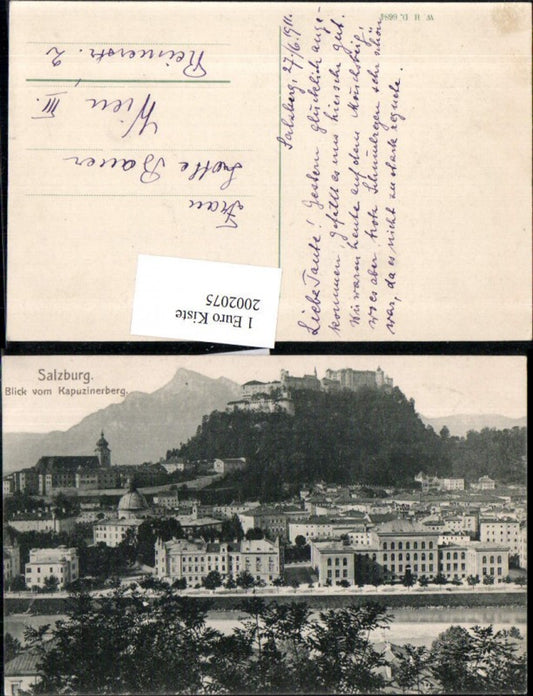 W. H. D. 6684
Salzburg, 27/6. 1911.
Liebe Tante! Gestern glücklich ange-
kommen, gefällt es uns hier sehr gut.
Wir waren heute auf dem Mönchsberg,
wo es aber trotz Schnürlregen sehr schön
war, da es nicht zu stark regnete.
Frau
Grette Bauer
Wien III.
Reisnerstr. 2
1 Euro Kiste
2002075
Salzburg.
Blick vom Kapuzinerberg.